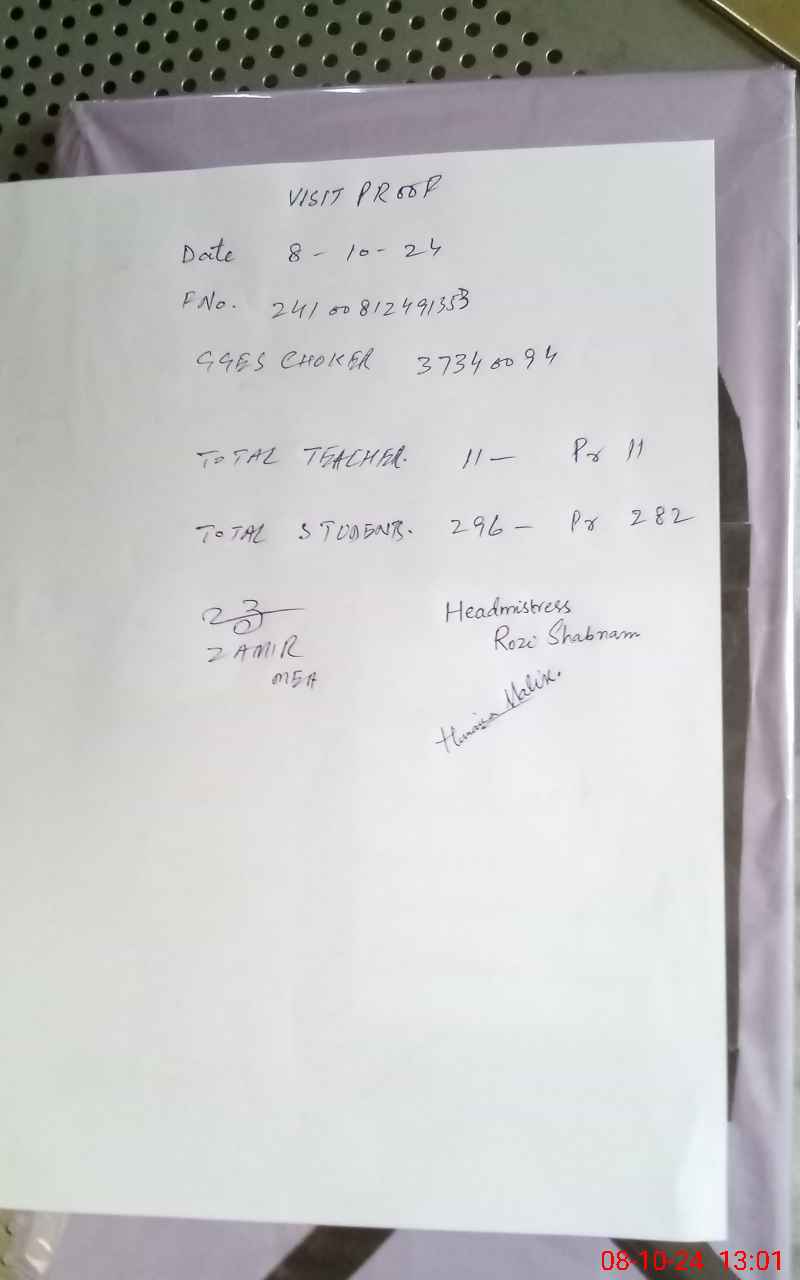 VISIT PROOF
Date 8-10-24
F No. 24100812491353
GGES CHOKER 37340094
TOTAL TEACHER. 11 — Pr 11
TOTAL STUDENTS. 296 — Pr 282
ZAMIR
MEA
Headmistress
Rozi Shabnam
Malik.
08-10-24 13:01